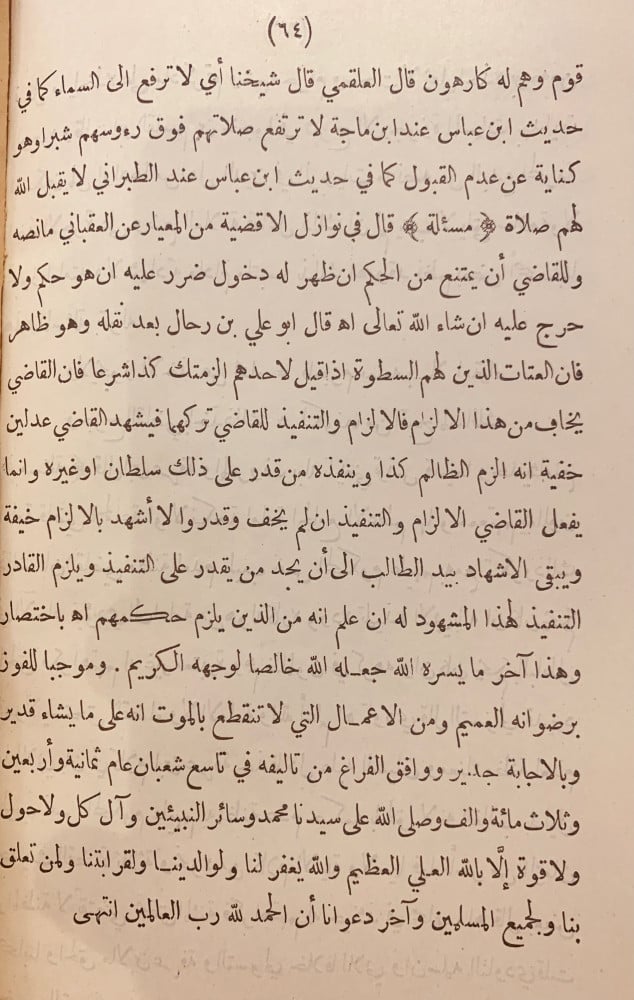 (٦٤)
قوم وهم له كارهون قال العلقمي قال شيخنا أي لا ترفع الى السماء كما في
حديث ابن عباس عند ابن ماجة لا ترتفع صلاتهم فوق رءوسهم شبرا وهو
كناية عن عدم القبول كما في حديث ابن عباس عند الطبراني لا يقبل الله
لهم صلاة ﴿ مسئلة ﴾ قال في نوازل الاقضية من المعيار عن العقباني مانصه
وللقاضي أن يمتنع من الحكم ان ظهر له دخول ضرر عليه ان هو حكم ولا
حرج عليه ان شاء الله تعالى اه قال ابو علي بن رحال بعد نقله وهو ظاهر
فان العتات الذين لهم السطوة اذا قيل لاحدهم الزمتك كذا شرعا فان القاضي
يخاف من هذا الالزام فالالزام والتنفيذ للقاضي تركهما فيشهد القاضي عدلين
خفية انه الزم الظالم كذا وينفذه من قدر على ذلك سلطان او غيره وانما
يفعل القاضي الالزام والتنفيذ ان لم يخف وقدر والا أشهد بالالزام خيفة
ويبقى الاشهاد بيد الطالب الى أن يجد من يقدر على التنفيذ ويلزم القادر
التنفيذ لهذا المشهود له ان علم انه من الذين يلزم حكمهم اه باختصار
وهذا آخر ما يسره الله جعله الله خالصا لوجهه الكريم . وموجبا للفوز
برضوانه العميم ومن الاعمال التي لا تنقطع بالموت انه على ما يشاء قدير
وبالاجابة جدير ووافق الفراغ من تاليفه في تاسع شعبان عام ثمانية وأربعين
وثلاث مائة والف وصلى الله على سيدنا محمد وسائر النبيئين وآل كل ولا حول
ولا قوة إلّا بالله العلي العظيم والله يغفر لنا ولوالدينا ولقرابتنا ولمن تعلق
بنا ولجميع المسلمين وآخر دعوانا أن الحمد لله رب العالمين انتهى